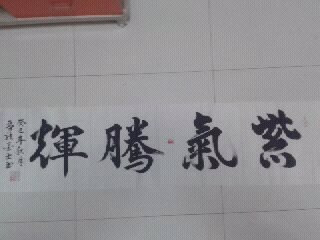 紫氣騰輝
癸巳年秋月